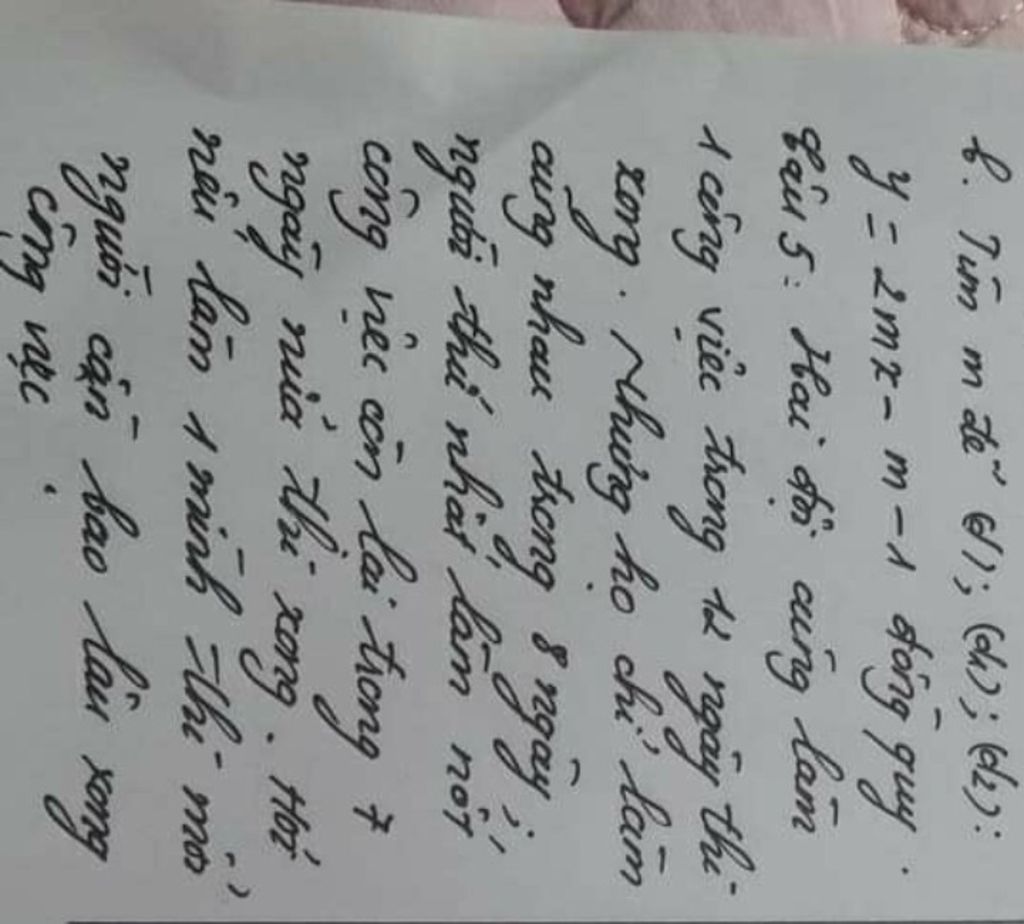 b. Tìm m để (d1); (d2); (d3):
y = 2mx - m - 1 đồng quy.
Bài 5: Hai đội cùng làm
1 công việc trong 12 ngày thì
xong. Nhưng họ chỉ làm
cùng nhau trong 8 ngày;
người thứ nhất làm nốt
công việc còn lại trong 7
ngày nữa thì xong. Hỏi
nếu làm 1 mình thì mỗi
người cần bao lâu xong
công việc